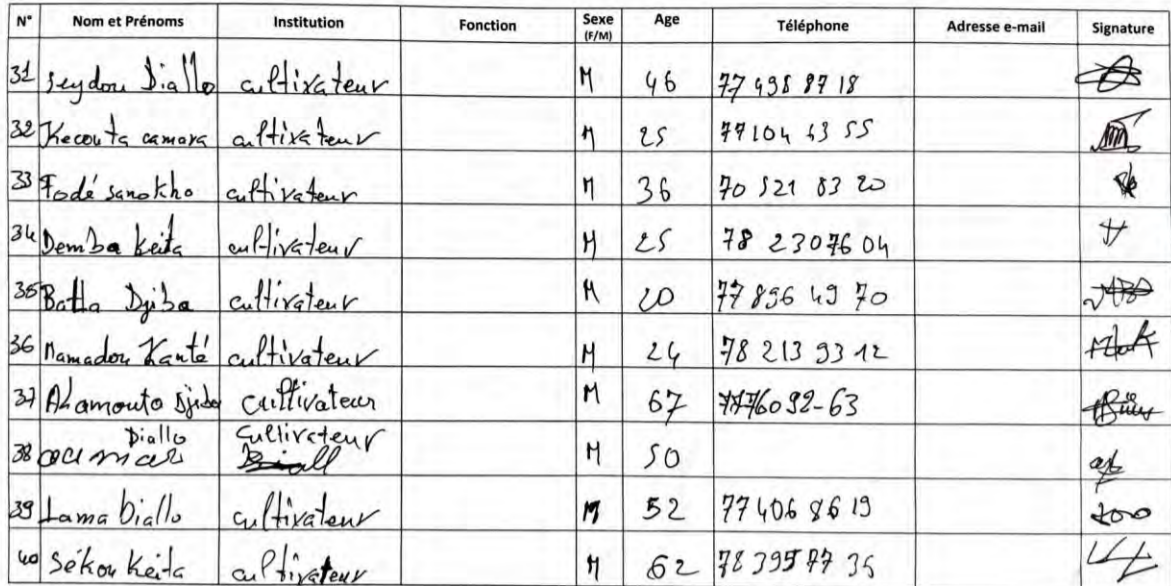 N° Nom et Prénoms Institution Fonction Sexe (F/M) Age Téléphone Adresse e-mail Signature
31 Seydou Diallo cultivateur M 46 77 498 87 18
32 Kecouta camara cultivateur M 25 77 104 43 55
33 Fodé sanokho cultivateur M 36 70 521 83 20
34 Demba keita cultivateur M 25 78 230 76 04
35 Batta Djiba cultivateur M 20 77 896 49 70
36 Mamadou Kanté cultivateur M 24 78 213 93 12
37 Alamouto Djiba cultivateur M 67 7776092-63
38 Diallo cultivateur M 50
39 Lama Diallo cultivateur M 52 77 406 86 19
40 Sékou keita cultivateur M 62 78 395 77 35